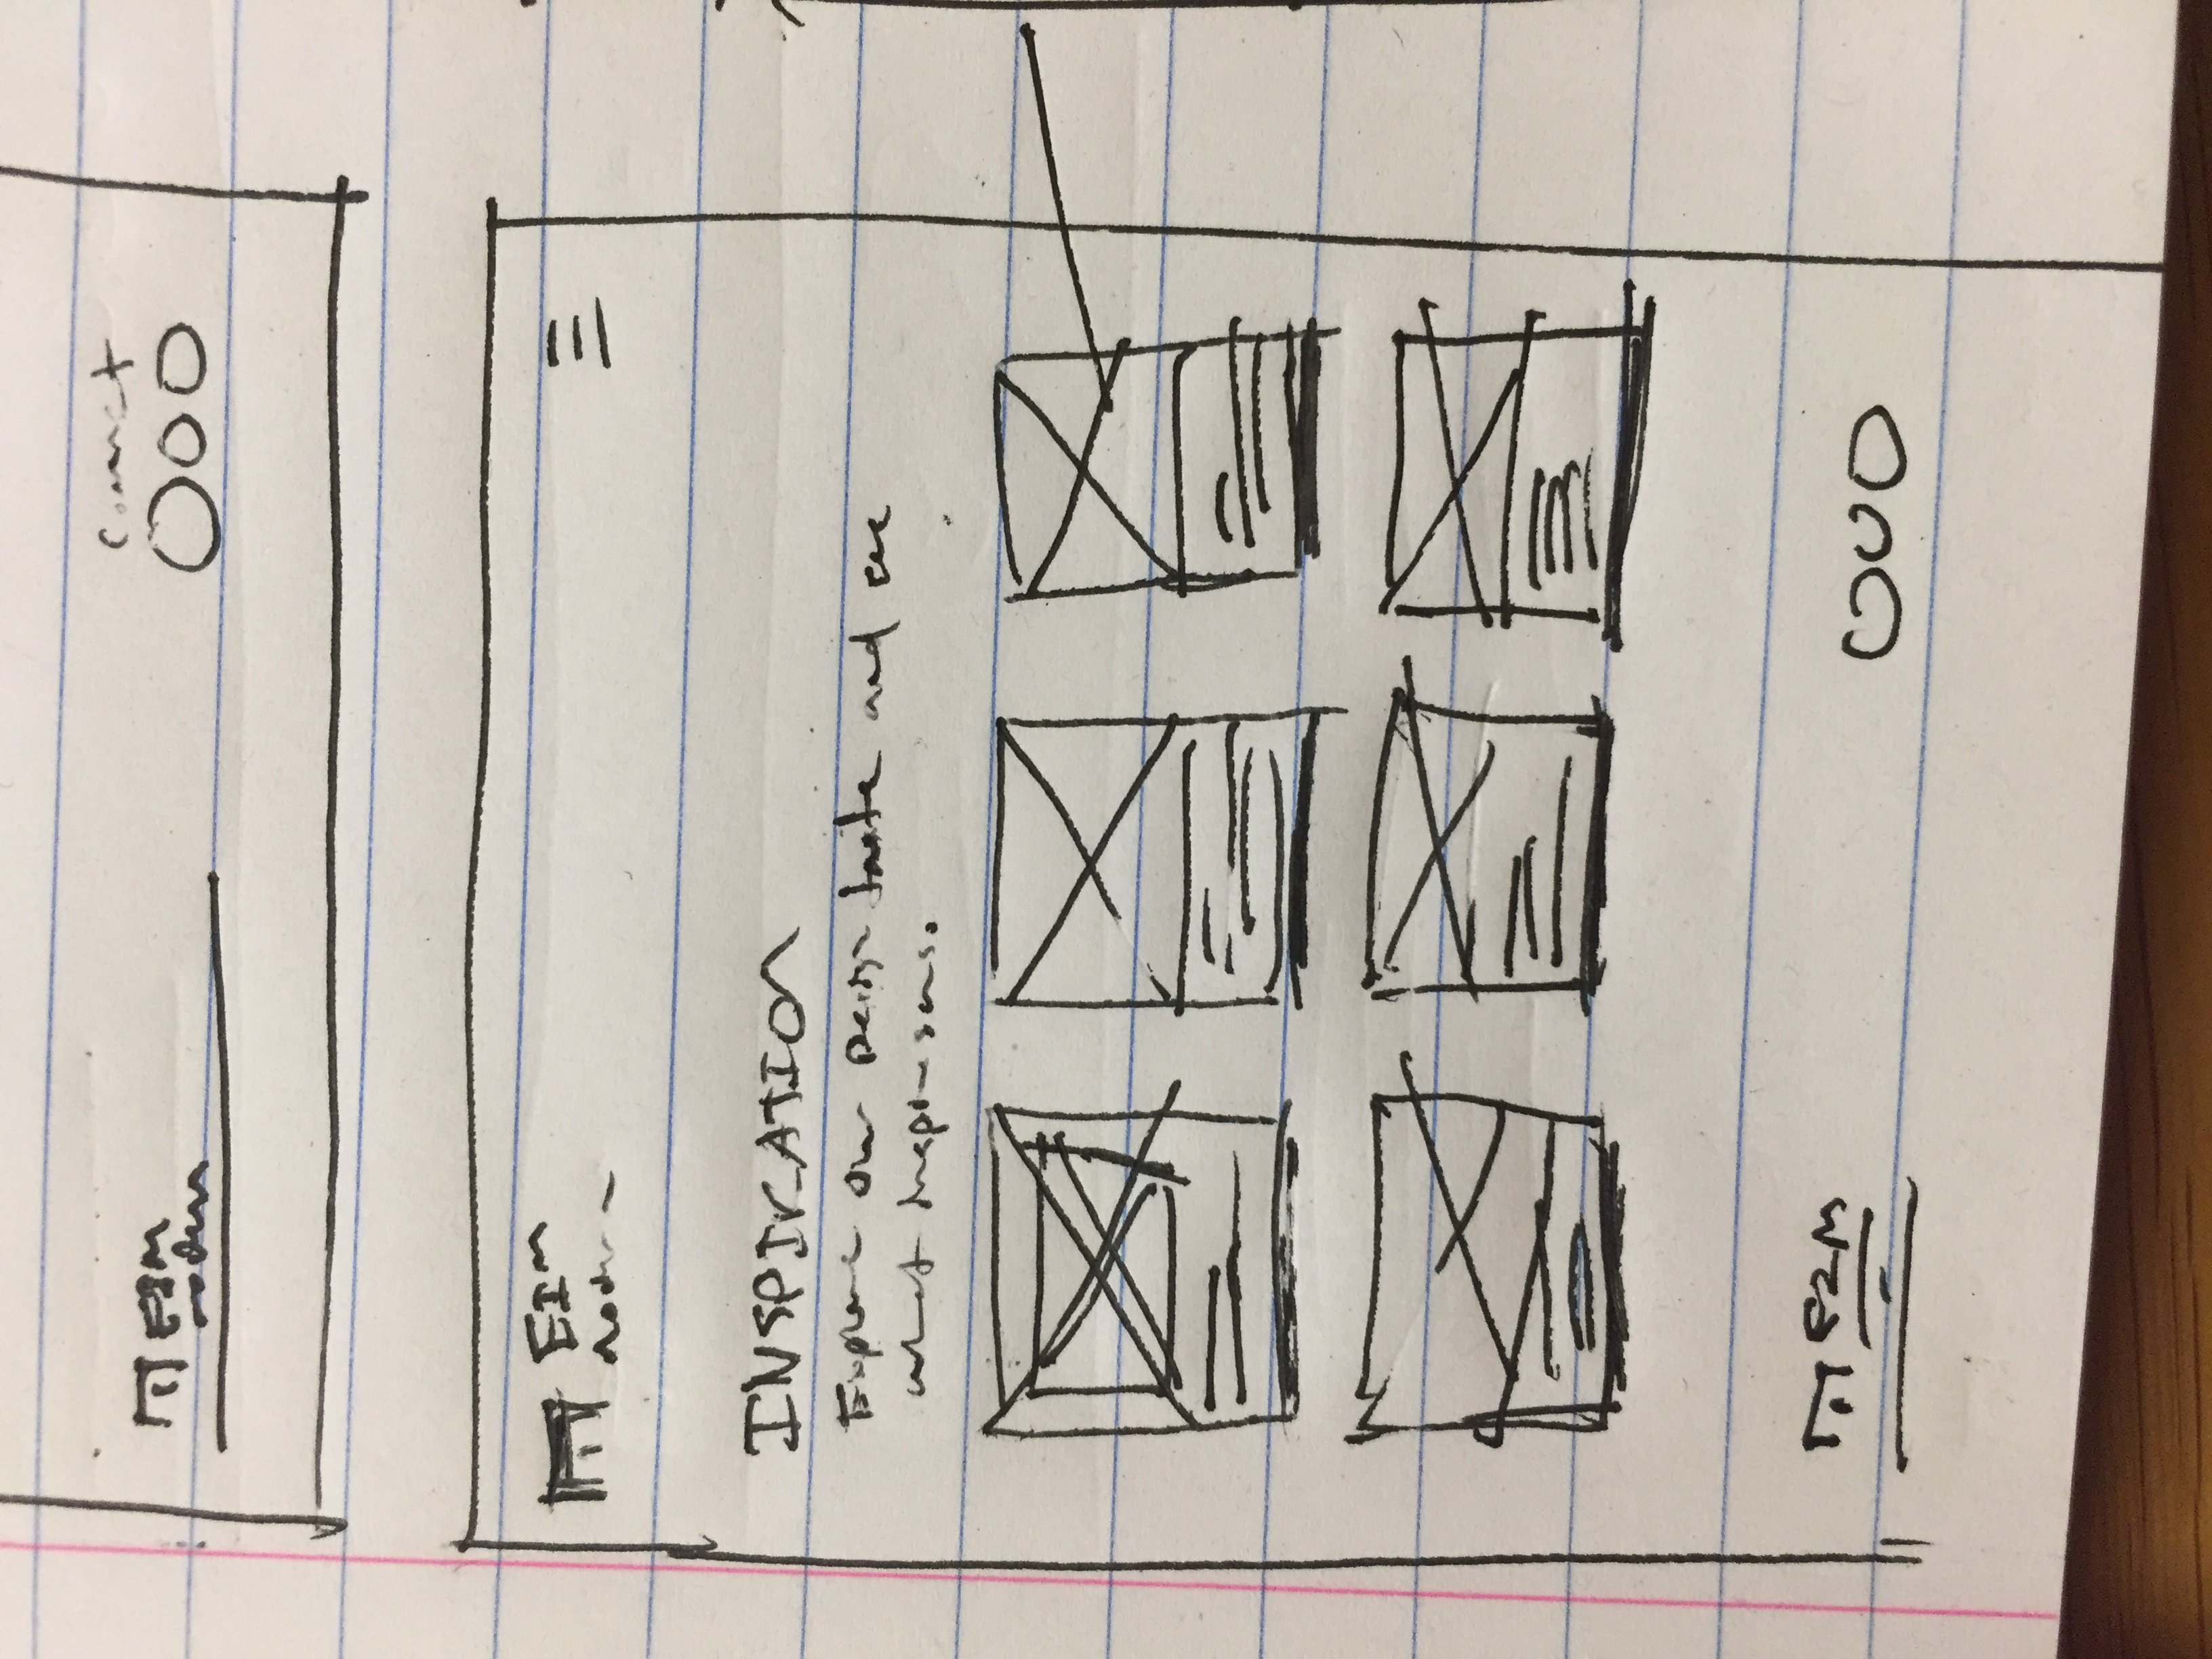 Connect
EIM
modern
EIM
modern
INSPIRATION
Explore our Design taste and see
what inspires us.
EIM